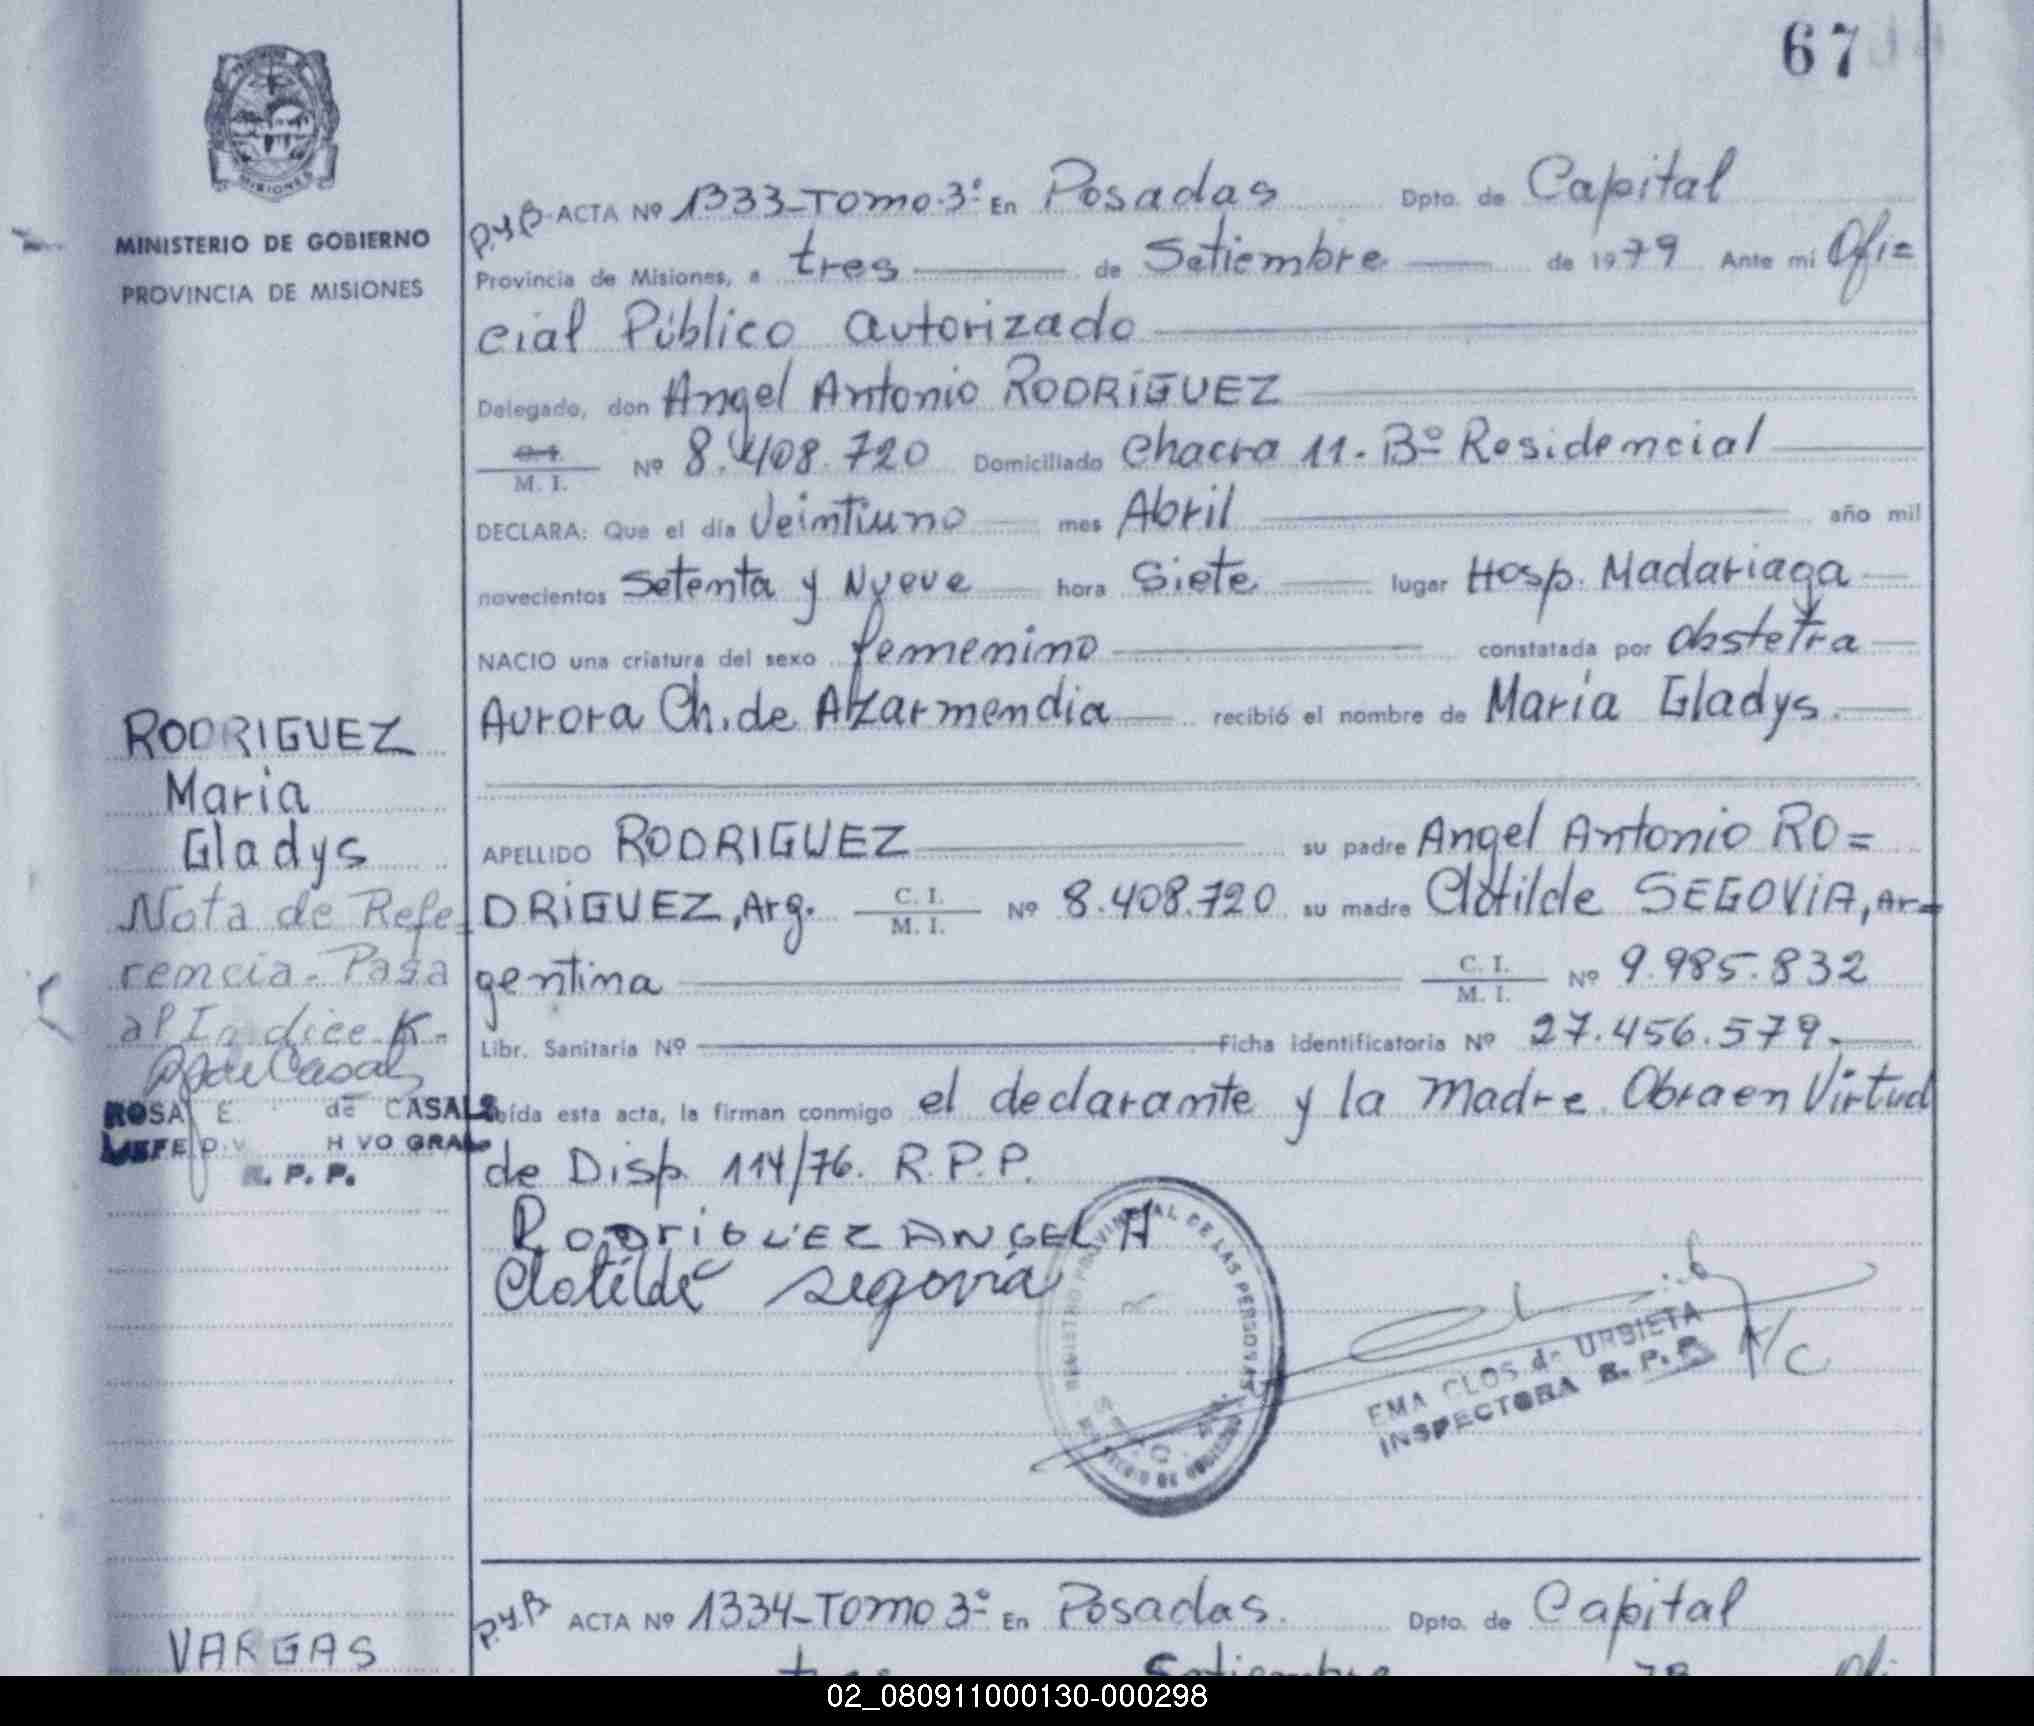 67
MISIONES
MINISTERIO DE GOBIERNO
PROVINCIA DE MISIONES
P.y B. ACTA Nº 1333-Tomo.3º En Posadas Dpto. de Capital
Provincia de Misiones, a tres de Setiembre de 1979 Ante mi Ofi=
cial Público autorizado
Delegado, don Angel Antonio RODRÍGUEZ
C.I.
M. I. Nº 8.408.720 Domiciliado Chacra 11. Bº Residencial
DECLARA: Que el día Veintiuno mes Abril año mil
novecientos Setenta y Nueve hora Siete lugar Hosp. Madariaga
NACIO una criatura del sexo femenino constatada por obstetra
Aurora Ch. de Azarmendia recibió el nombre de María Gladys.
APELLIDO RODRIGUEZ su padre Angel Antonio RO=
DRÍGUEZ, Arg. C. I. Nº 8.408.720 su madre Clotilde SEGOVIA, Ar=
M. I.
gentina C. I. Nº 9.985.832
M. I.
Libr. Sanitaria Nº Ficha identificatoria Nº 27.456.579.
Leída esta acta, la firman conmigo el declarante y la Madre. Obra en Virtud
de Disp. 114/76. R.P.P.
RODRIGUEZ ANGEL A
Clotilde Segovia
RODRIGUEZ
Maria
Gladys
Nota de Refe=
rencia. Pasa
al Indice K.
R de Casals
ROSA E. de CASALS
JEFE DIV. H VO GRAL
R. P. P.
REGISTRO PROVINCIAL DE LAS PERSONAS
MINISTERIO DE GOBIERNO
EMA CLOS de URBIETA
INSPECTORA R. P. P.
A/C
P.y.B. ACTA Nº 1334-Tomo 3º En Posadas. Dpto. de Capital
VARGAS
tres Setiembre
02_080911000130-000298